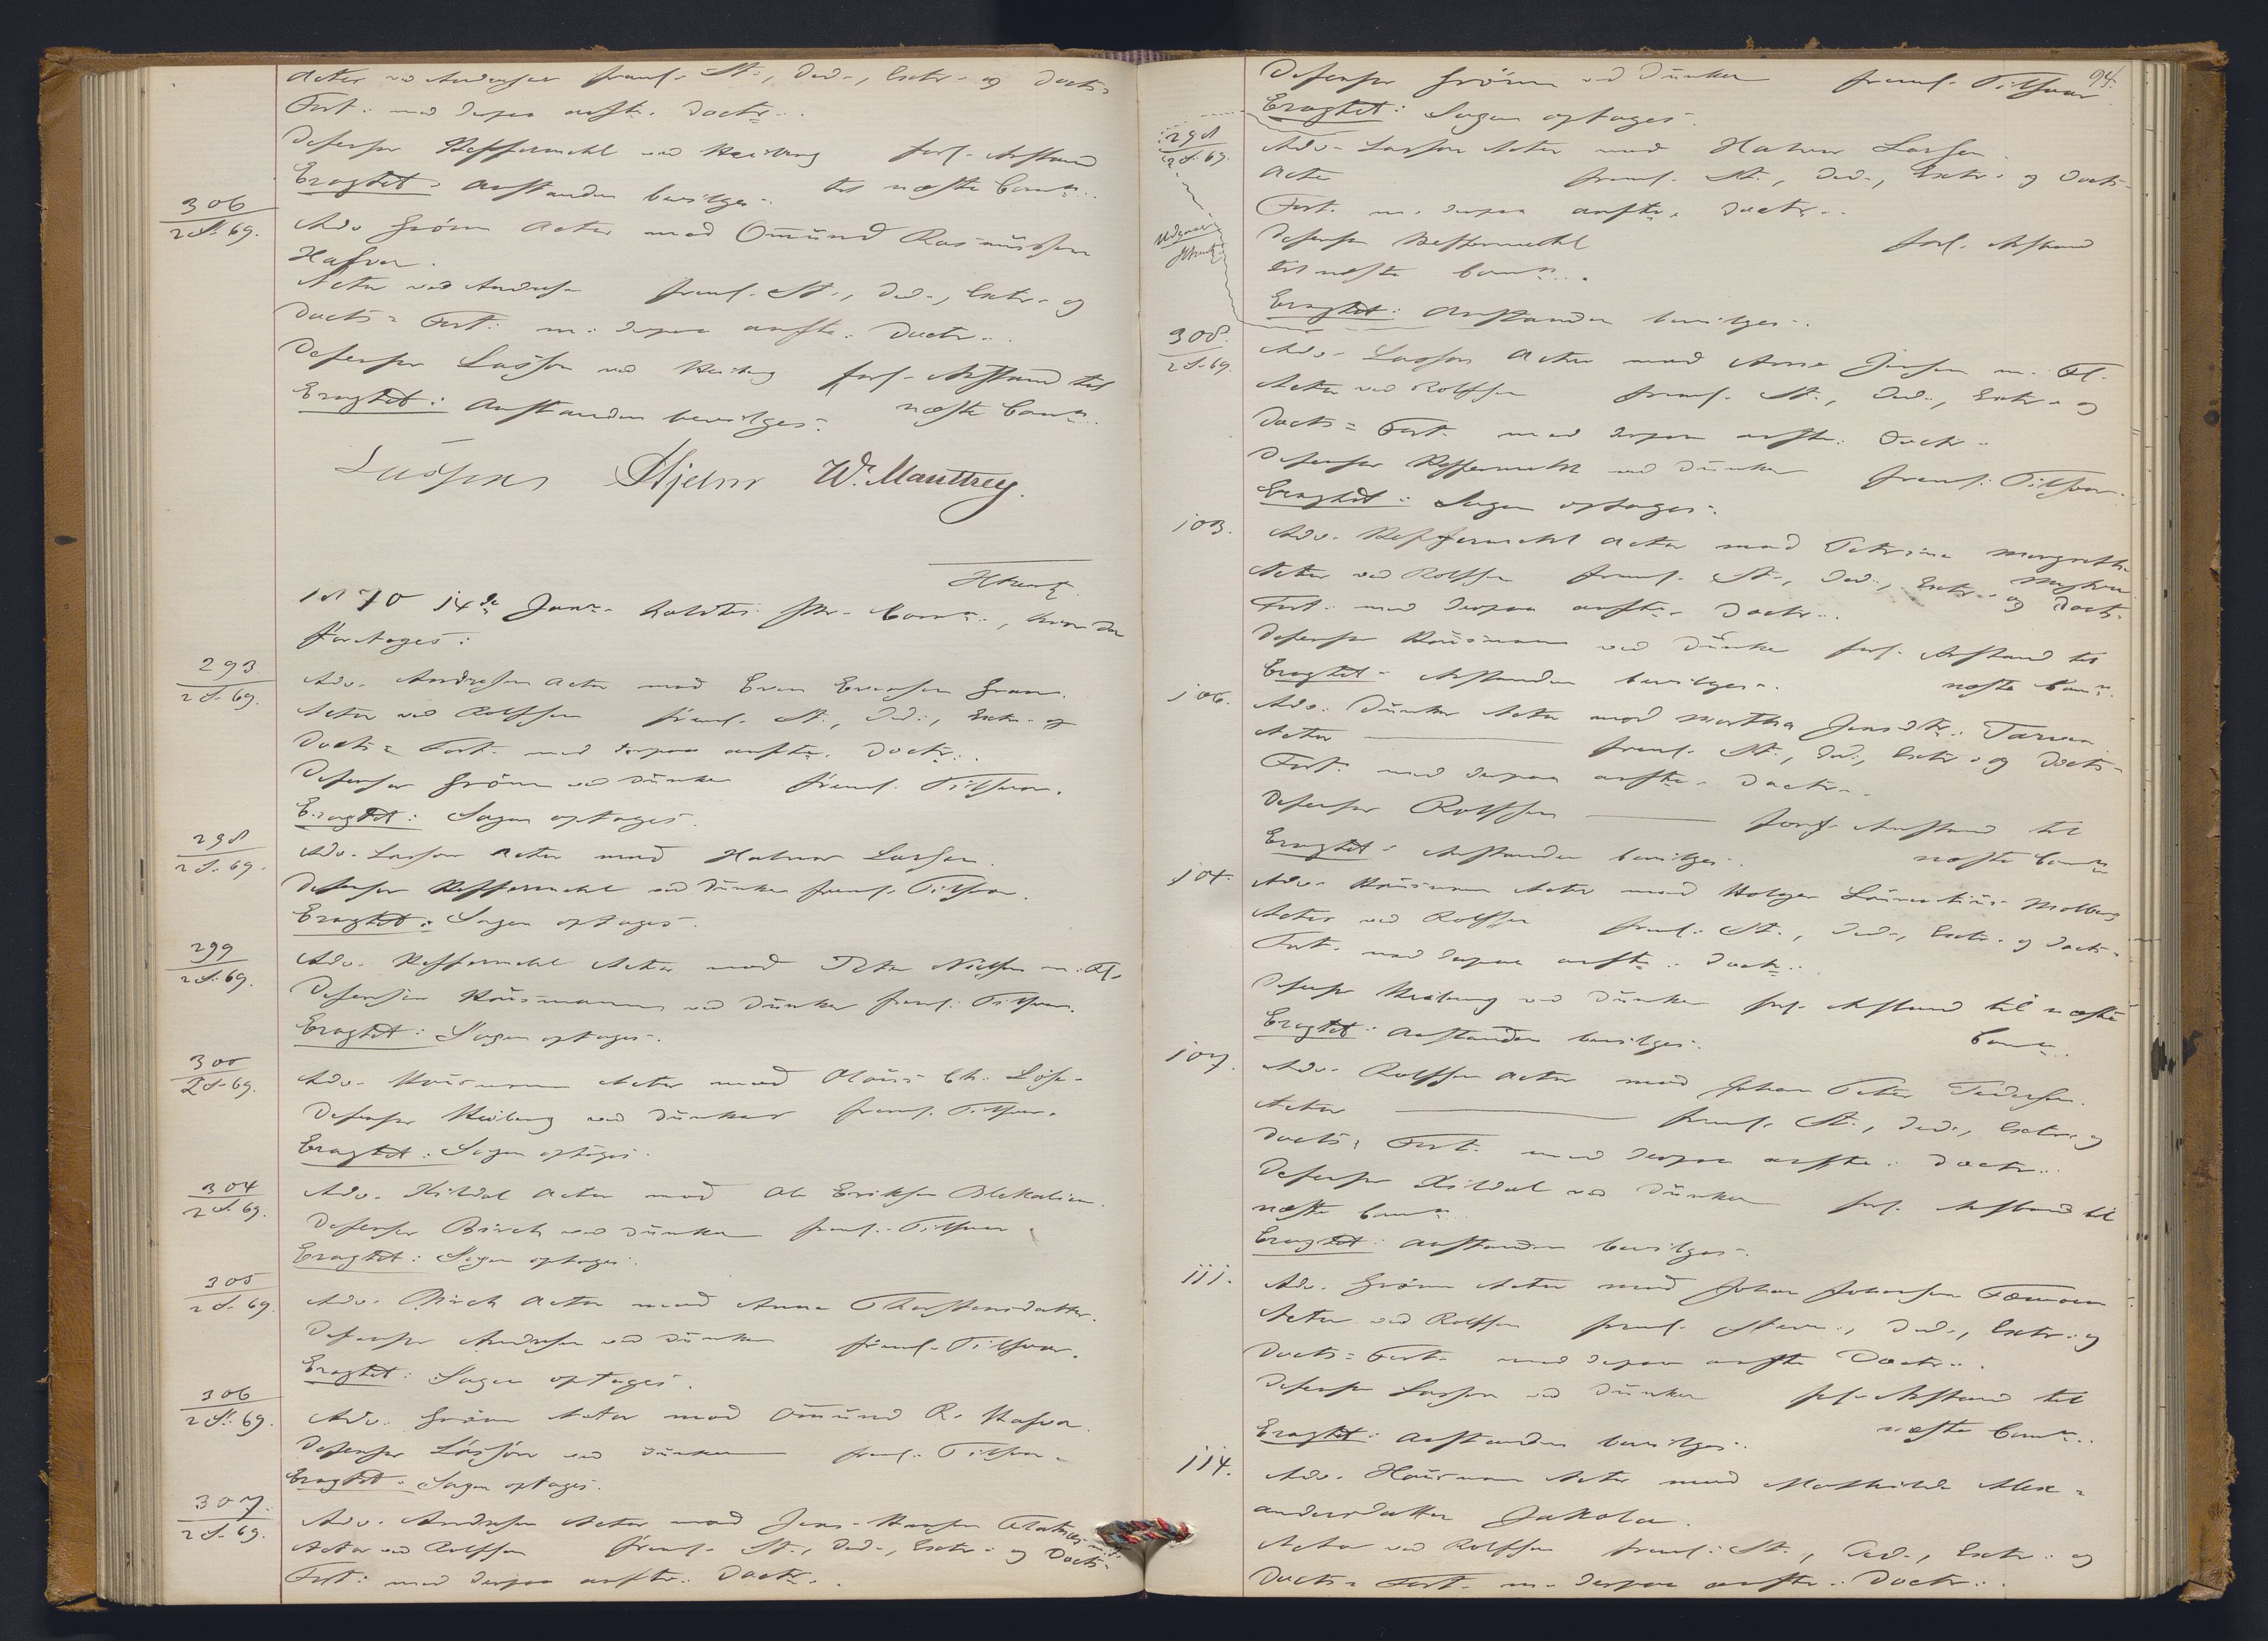 Actor ved Andresen freml. St., Ded., Extr. og Docts
Fort. med derpaa anfte. Doctr.
Defensor Keffermehl ved Heiberg forl. Anstand
Eragtet: Anstanden bevilges. til næste Camr.
306
2 S. 69.
Adv. Grönn Actor mod Omund Rasmussen
Hafsøe.
Actor ved Andresen freml. St., Ded., Extr. og
Docts = Fort. m. derpaa anfte. Doctr.
Defensor Lasson ved Heiberg forl. Anstand til
Eragtet: Anstanden bevilges. næste Camr.
Lasson Hjelm W. Manthey.
1870 14de Janr. holdtes Camr., hvor da
foretoges:
293
2 S. 69.
Adv. Andresen Actor mod Even Evensen Gran.
Actor ved Rolfsen freml. St., Ded., Extr. og
Docts = Fort. med derpaa anfte. Doctr.
Defensor Grönn ved Dunker freml. Tilsvar.
Eragtet: Sagen optages.
298
2 S. 69.
Adv. Lasson Actor mod Halvor Larsen.
Defensor Keffermehl ved Dunker freml. Tilsvar.
Eragtet: Sagen optages.
299
2 S. 69.
Adv. Keffermehl Actor mod Peter Nielsen m. Fl.
Defensor Housmann ved Dunker freml. Tilsvar.
Eragtet: Sagen optages.
300
2 S. 69.
Adv. Housmann Actor mod Olaus Ch.
Defensor Heiberg ved Dunker freml. Tilsvar.
Eragtet: Sagen optages.
304
2 S. 69.
Adv. Kildal Actor mod Ole Eriksen Blekalien.
Defensor Birch ved Dunker freml. Tilsvar.
Eragtet: Sagen optages.
305
2 S. 69.
Adv. Birch Actor mod Anne Thorstensdatter.
Defensor Andresen ved Dunker freml. Tilsvar.
Eragtet: Sagen optages.
306
2 S. 69.
Adv. Grönn Actor mod Omund R. Hafsøe.
Defensor Lasson ved Dunker freml. Tilsvar.
Eragtet: Sagen optages.
307.
2 S. 69.
Adv. Andresen Actor mod Jens Hansen
Actor ved Rolfsen freml. St., Ded., Extr. og Docts
Fort. med derpaa anfte. Doctr.
94.
Defensor Grönn ved Dunker freml. Tilsvar
Eragtet: Sagen optages.
298
2 S. 69.
Adv. Lasson Actor mod Halvor Larsen.
Actor freml. St., Ded., Extr. og Docts
Fort. m. derpaa anfte. Doctr.
Udgaar
Defensor Keffermehl forl. Anstand
til næste Camr.
Eragtet: Anstanden bevilges.
308.
2 S. 69.
Adv. Lasson Actor mod Arne Jensen m. Fl.
Actor ved Rolfsen freml. St., Ded., Extr. og
Docts = Fort. med derpaa anfte. Doctr.
Defensor Keffermehl ved Dunker freml. Tilsvar.
Eragtet: Sagen optages.
103.
Adv. Keffermehl Actor mod Petrine Margrethe
Actor ved Rolfsen freml. St., Ded., Extr. og Docts
Fort. med derpaa anfte. Doctr.
Defensor Housmann ved Dunker forl. Anstand til
Eragtet: Anstanden bevilges. næste Camr.
106.
Adv. Dunker Actor mod Martha Jensdtr.
Actor freml. St., Ded., Extr. og Docts
Fort. med derpaa anfte. Doctr.
Defensor Rolfsen forl. Anstand til
Eragtet: Anstanden bevilges. næste Camr.
104.
Adv. Housmann Actor mod Holger Laurentius Molberg
Actor ved Rolfsen freml. St., Ded., Extr. og Docts
Fort. med derpaa anfte. Doctr.
Defensor Heiberg ved Dunker forl. Anstand til næste
Eragtet: Anstanden bevilges. Camr.
107.
Adv. Rolfsen Actor mod Johan Peter Pedersen.
Actor freml. St., Ded., Extr. og
Docts = Fort. med derpaa anfte. Doctr.
Defensor Kildal ved Dunker forl. Anstand til
næste Camr.
Eragtet: Anstanden bevilges.
111.
Adv. Grönn Actor mod Johan Johansen
Actor ved Rolfsen freml. Stevn., Ded., Extr. og
Docts = Fort. med derpaa anfte Doctr.
Defensor Lasson ved Dunker forl. Anstand til
Eragtet: Anstanden bevilges. næste Camr.
114.
Adv. Housmann Actor mod Mathilde Alex =
andersdatter Jakola.
Actor ved Rolfsen freml. St., Ded., Extr. og
Docts = Fort. m. derpaa anfte. Doctr.